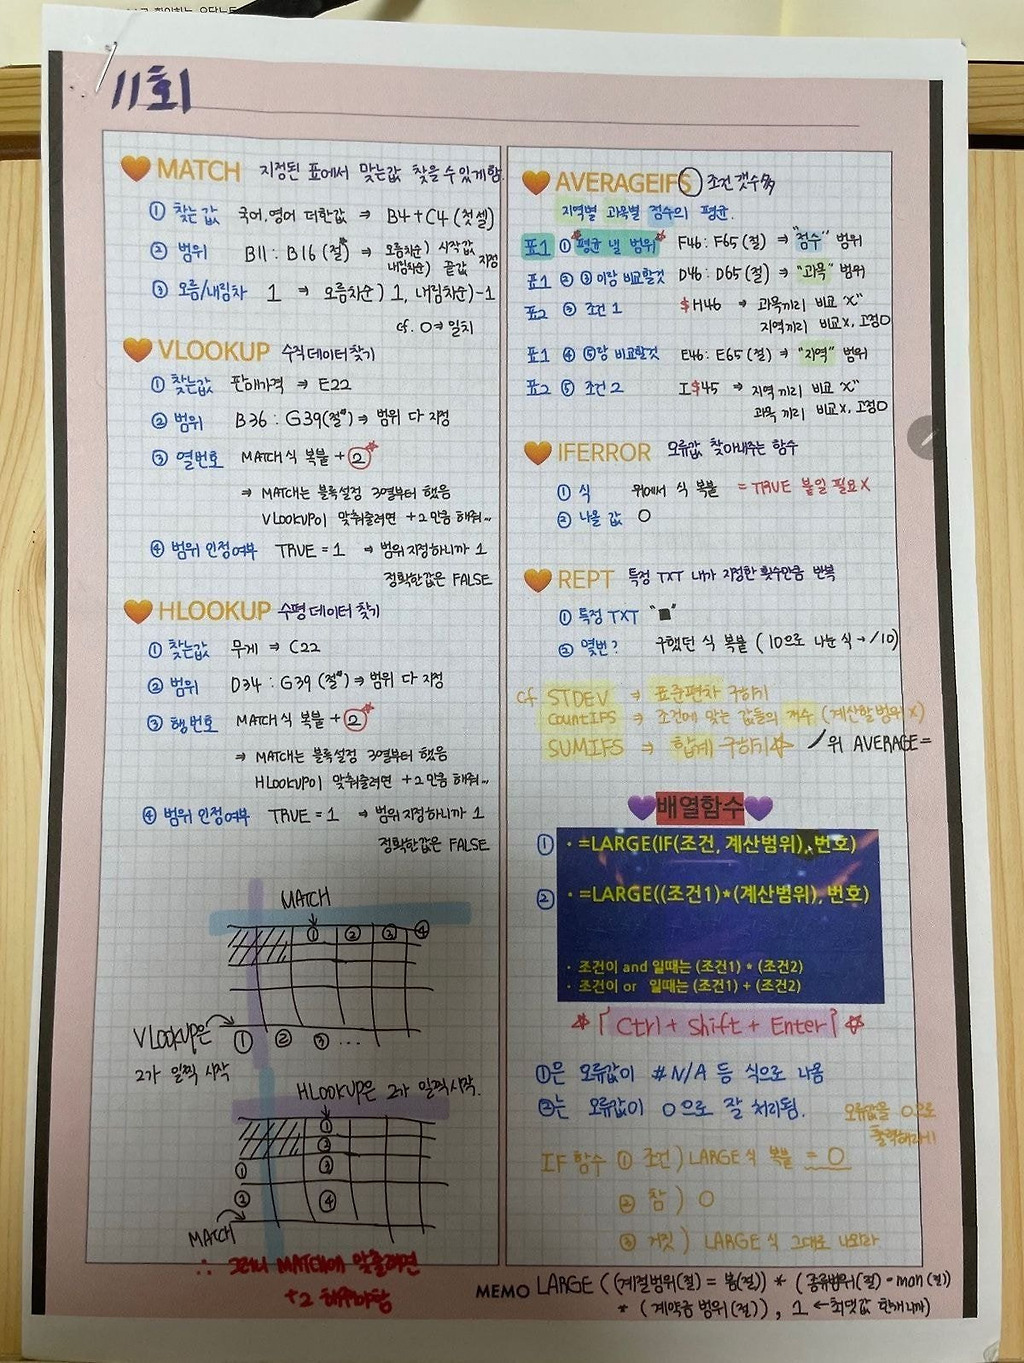 11회
MATCH 지정된 표에서 맞는값 찾을수있게함
① 찾는값 국어,영어 더한값 ⇒ B4+C4 (첫셀)
② 범위 B11 : B16 (절) ⇒ 오름차순) 시작값
내림차순) 끝값 지정
③ 오름/내림차 1 ⇒ 오름차순) 1, 내림차순)-1
cf. 0⇒ 일치
VLOOKUP 수직데이터찾기
① 찾는값 판매가격 ⇒ E22
② 범위 B36 : G39 (절) ⇒ 범위 다 지정
③ 열번호 MATCH식 복붙 + 2
⇒ MATCH는 블록설정 3열부터 했음
VLOOKUP이 맞춰줄려면 +2만큼 해줘~
④ 범위 인정여부 TRUE = 1 → 범위지정하니까 1
정확한값은 FALSE
HLOOKUP 수평데이터찾기
① 찾는값 무게 ⇒ C22
② 범위 D34 : G39 (절) ⇒ 범위 다 지정
③ 행번호 MATCH식 복붙 + 2
⇒ MATCH는 블록설정 3열부터 했음
HLOOKUP이 맞춰줄려면 +2만큼 해줘~
④ 범위 인정여부 TRUE = 1 → 범위지정하니까 1
정확한값은 FALSE
MATCH
① ② ③ ④
VLOOKUP은 ① ② ③ ...
2가 일찍 시작
HLOOKUP은 2가 일찍시작.
①
②
① ③
② ④
MATCH
∴ 그러니 MATCH에 맞출려면
+2 해줘야함
AVERAGEIFS 조건 갯수多
지역별 과목별 점수의 평균.
표1 ① 평균 낼 범위 F46 : F65 (절) ⇒ "점수" 범위
표1 ② ③이랑 비교할것 D46 : D65 (절) ⇒ "과목" 범위
표2 ③ 조건 1 $H46 ⇒ 과목끼리 비교 X"
지역끼리 비교X, 고정O
표1 ④ ⑤랑 비교할것 E46 : E65 (절) ⇒ "지역" 범위
표2 ⑤ 조건 2 I$45 ⇒ 지역끼리 비교 X"
과목끼리 비교X, 고정O
IFERROR 오류값 찾아내주는 함수
① 식 위에서 식 복붙 = TRUE 붙일 필요X
② 나올 값 0
REPT 특정 TXT 내가 지정한 횟수만큼 반복
① 특정 TXT "■"
② 몇번? 구했던 식 복붙 ( 10으로 나눈 식 → /10)
cf STDEV ⇒ 표준편차 구하기
COUNTIFS ⇒ 조건에 맞는 값들의 개수 (계산할범위X)
SUMIFS ⇒ 합계 구하기 / 위 AVERAGE=
배열함수
① · =LARGE(IF(조건, 계산범위), 번호)
② · =LARGE((조건1)*(계산범위), 번호)
· 조건이 and 일때는 (조건1) * (조건2)
· 조건이 or 일때는 (조건1) + (조건2)
「Ctrl + Shift + Enter」
①은 오류값이 #N/A 등 식으로 나옴
②는 오류값이 0 으로 잘 처리됨.
오류값을 0으로
출력해라!
IF 함수 ① 조건) LARGE 식 복붙 = 0
② 참) 0
③ 거짓) LARGE 식 그대로 나와라
MEMO LARGE ((계절범위(절) = 봄(절)) * ( 종류범위(절) = man(절))
* ( 계약금 범위(절)) , 1 ← 최댓값 한개니까)